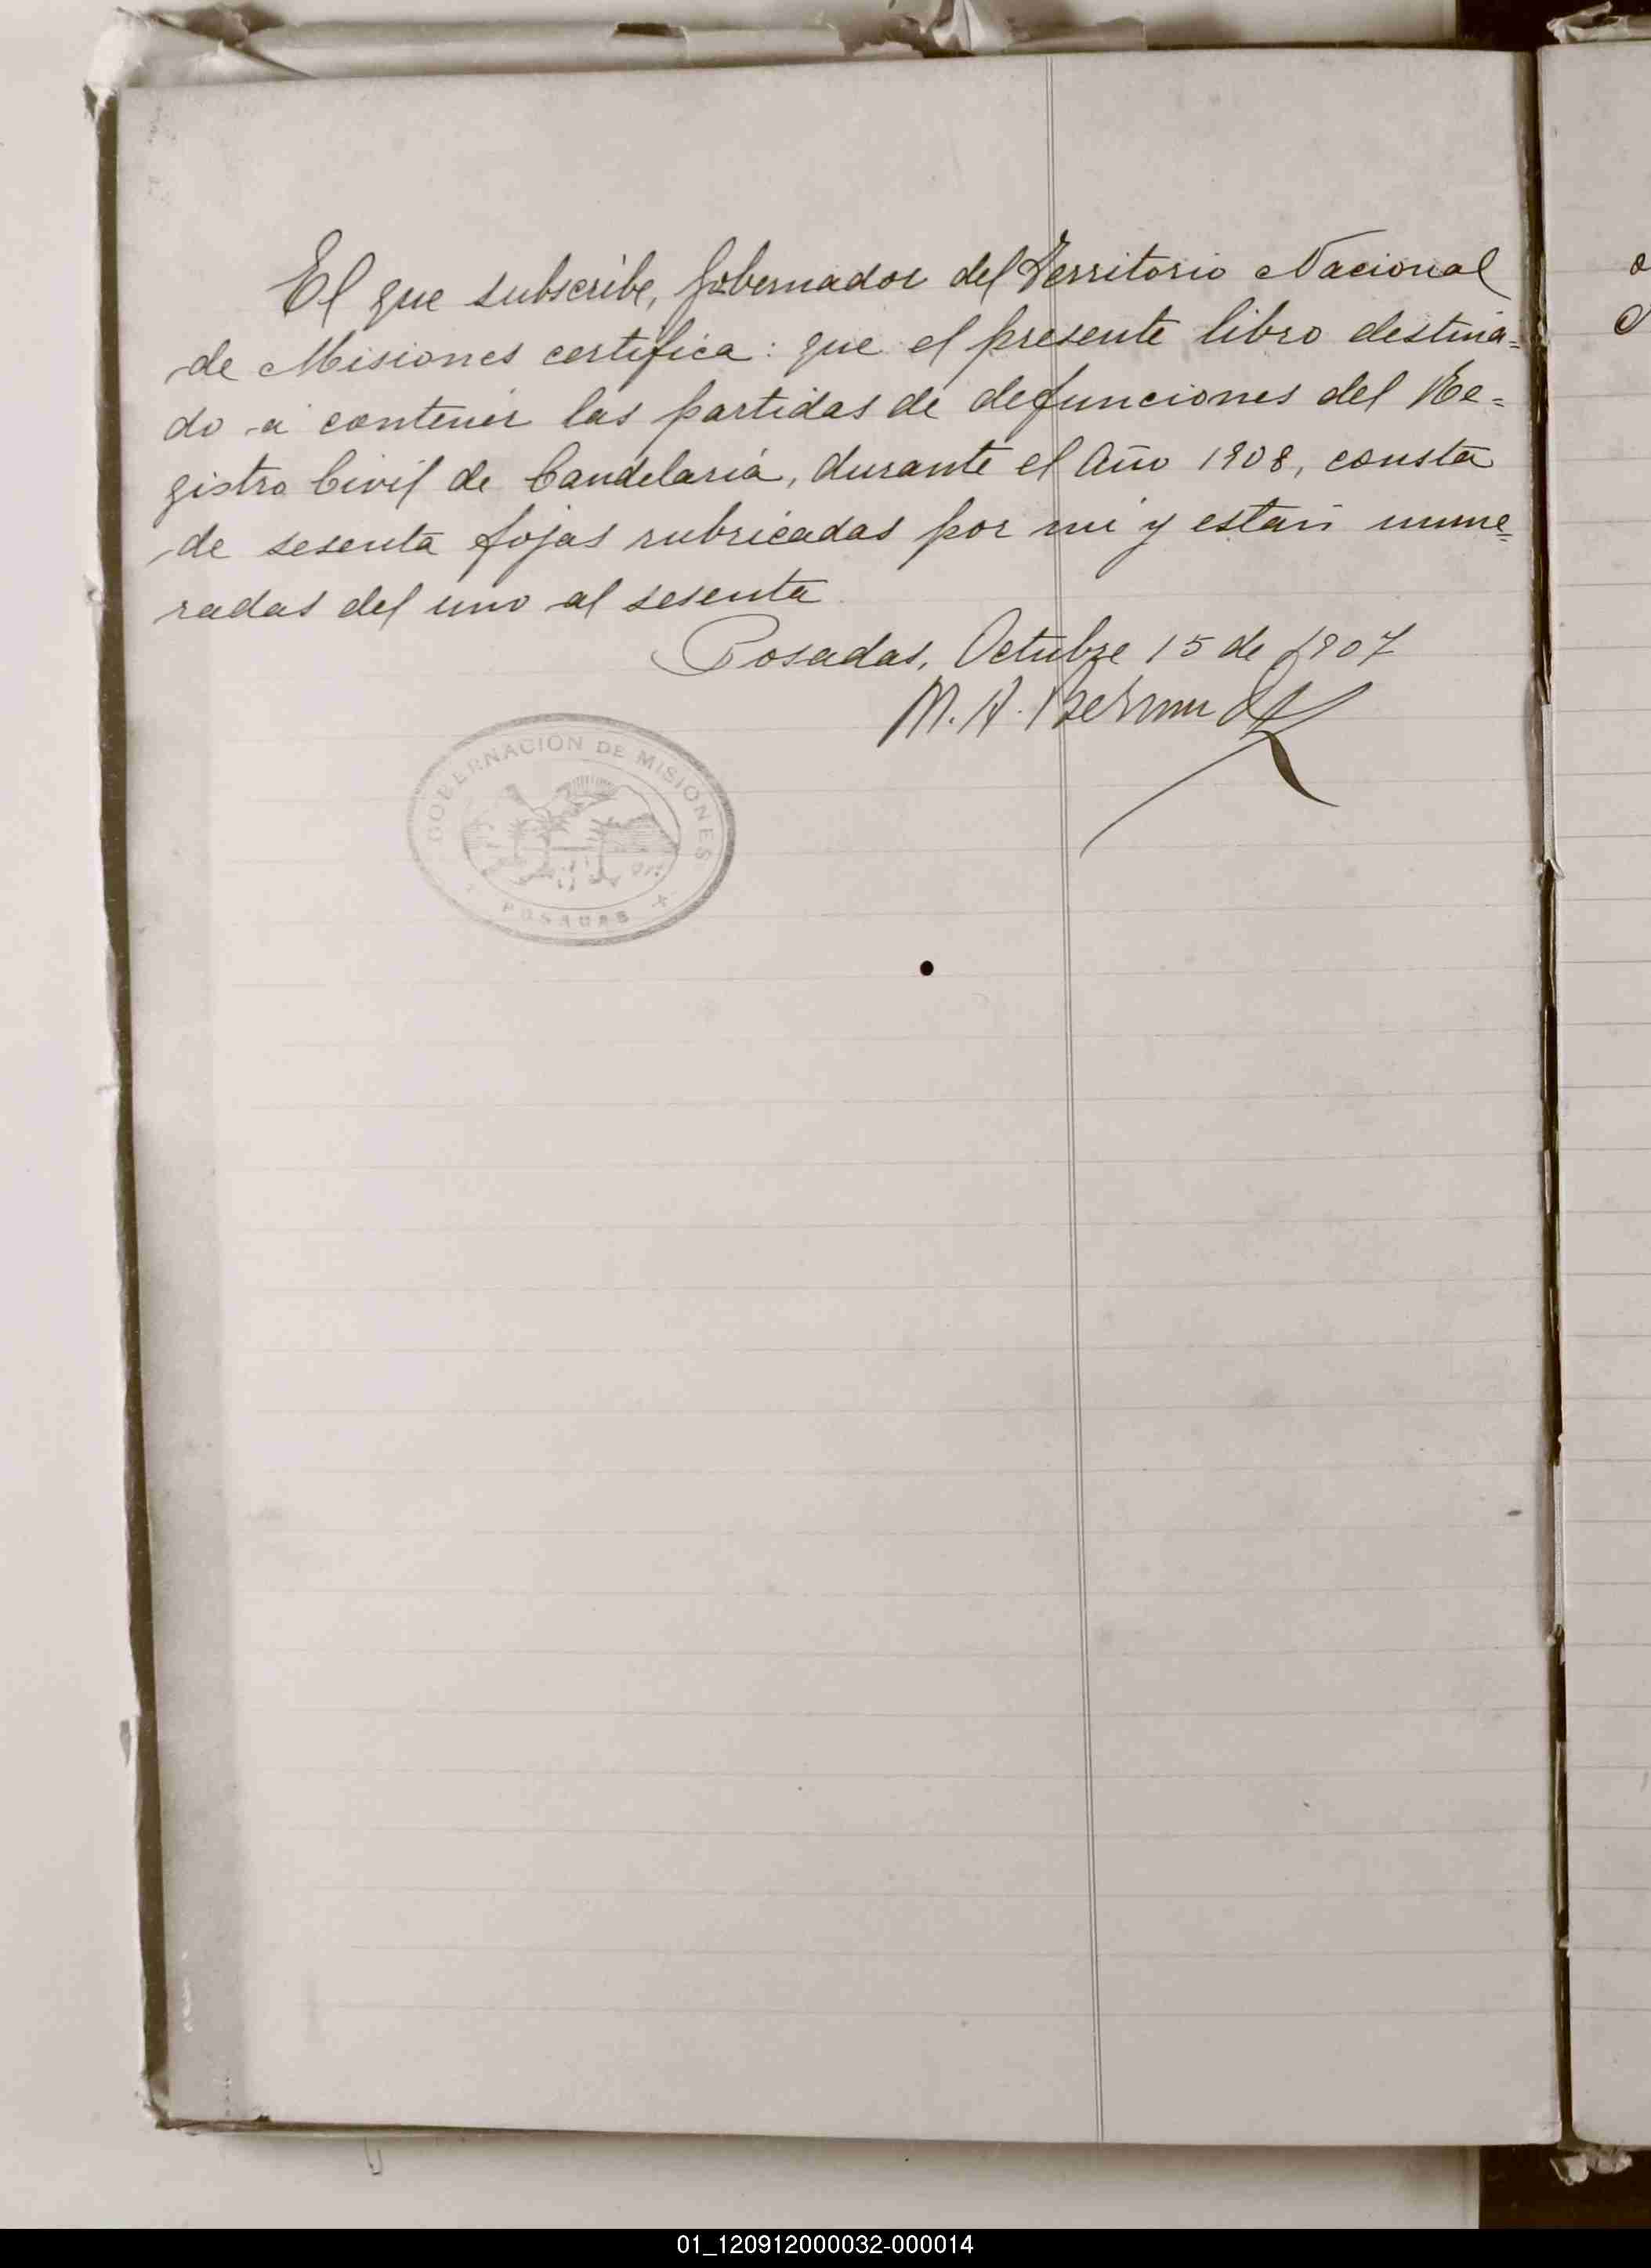 El que subscribe, Gobernador del Territorio Nacional
de Misiones certifica: que el presente libro destina=
do á contener las partidas de defunciones del Re=
gistro Civil de Candelaria, durante el Año 1908, consta
de sesenta fojas rubricadas por mi y estan nume=
radas del uno al sesenta
Posadas, Octubre 15 de 1907
M. A. Bermudez
GOBERNACION DE MISIONES
POSADAS
01_120912000032-000014